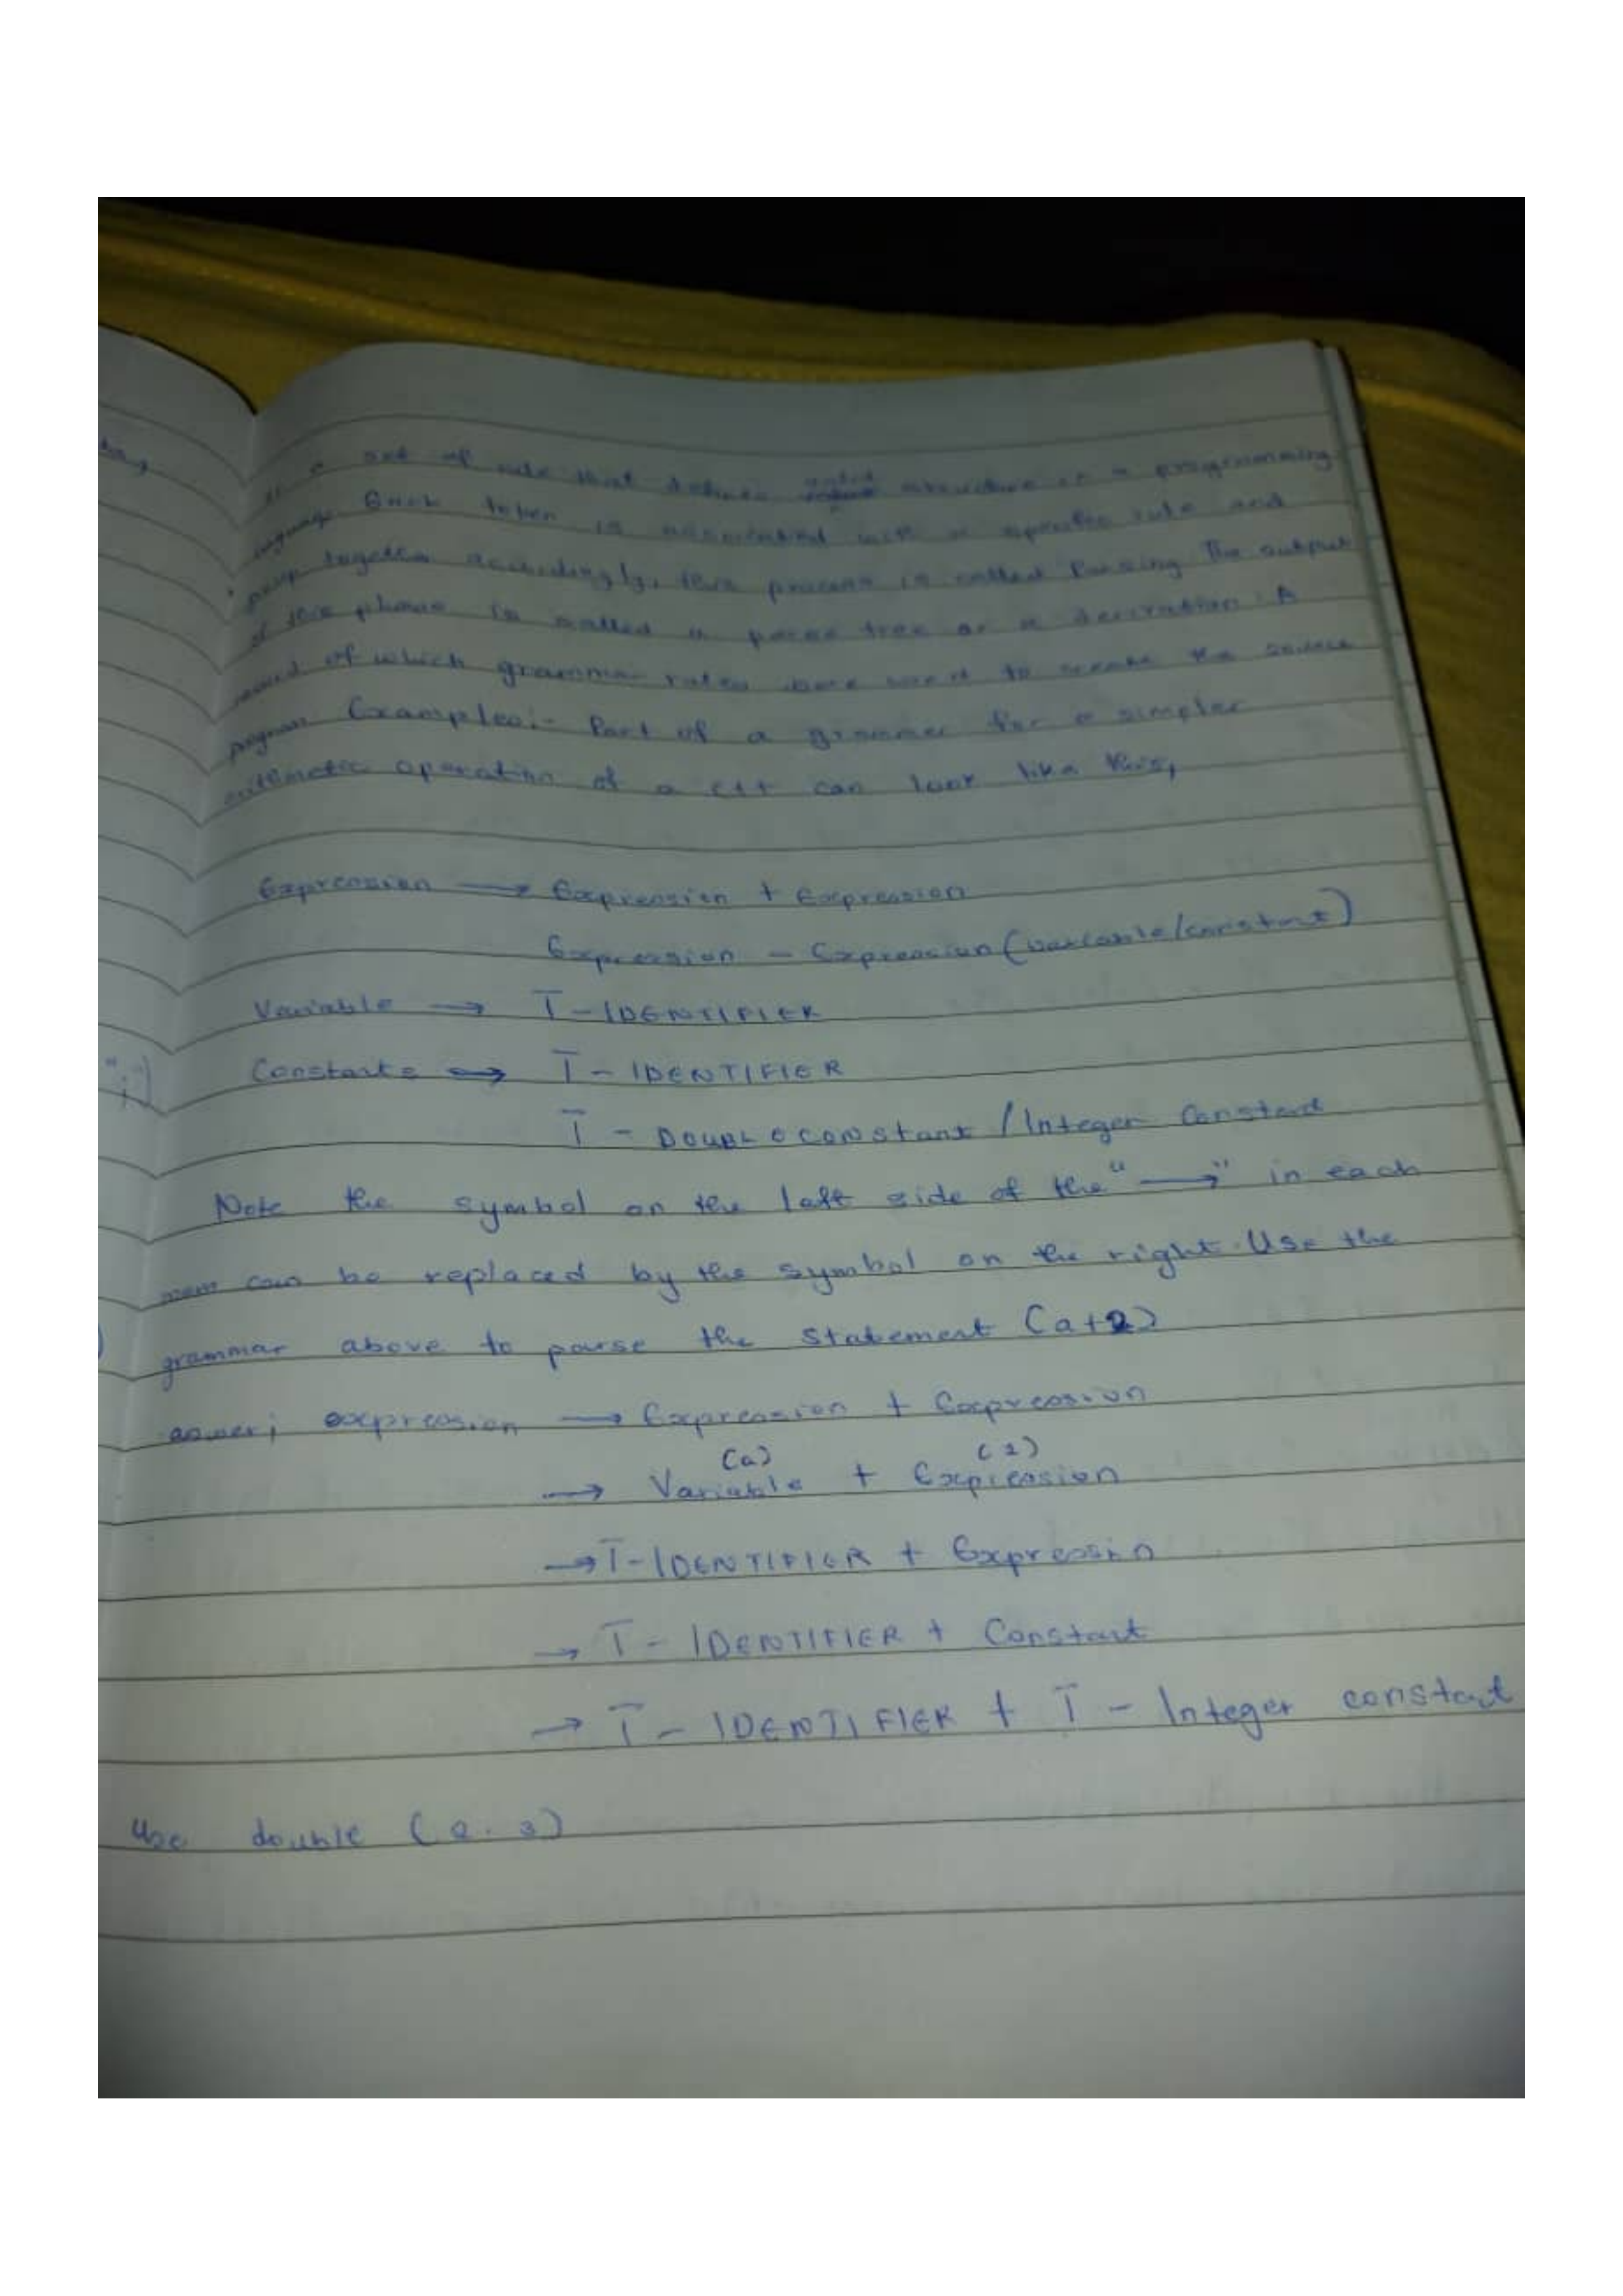 set of rule that defines valid structure of a programming
language Each token is associated with a specific rule and
group together accordingly, this process is called Parsing The output
of this phase is called a parse tree or a derivation. A
record of which grammar rules were used to create the source
program Examples:- Part of a grammar for a simpler
arithmetic operation of a c++ can look like this,
Expression → Expression + Expression
Expression - Expression (variable/constant)
Variable → T-IDENTIFIER
Constants → T-IDENTIFIER
T - DOUBLE CONStant / Integer Constant
Note the symbol on the left side of the "→" in each
can be replaced by the symbol on the right. Use the
grammar above to parse the statement (a+2)
expression → Expression + Expression
(a) (2)
→ Variable + Expression
→ T-IDENTIFIER + Expressin
→ T - IDENTIFIER + Constant
→ T - IDENTIFIER + T - Integer constant
Use double (2.3)
";")